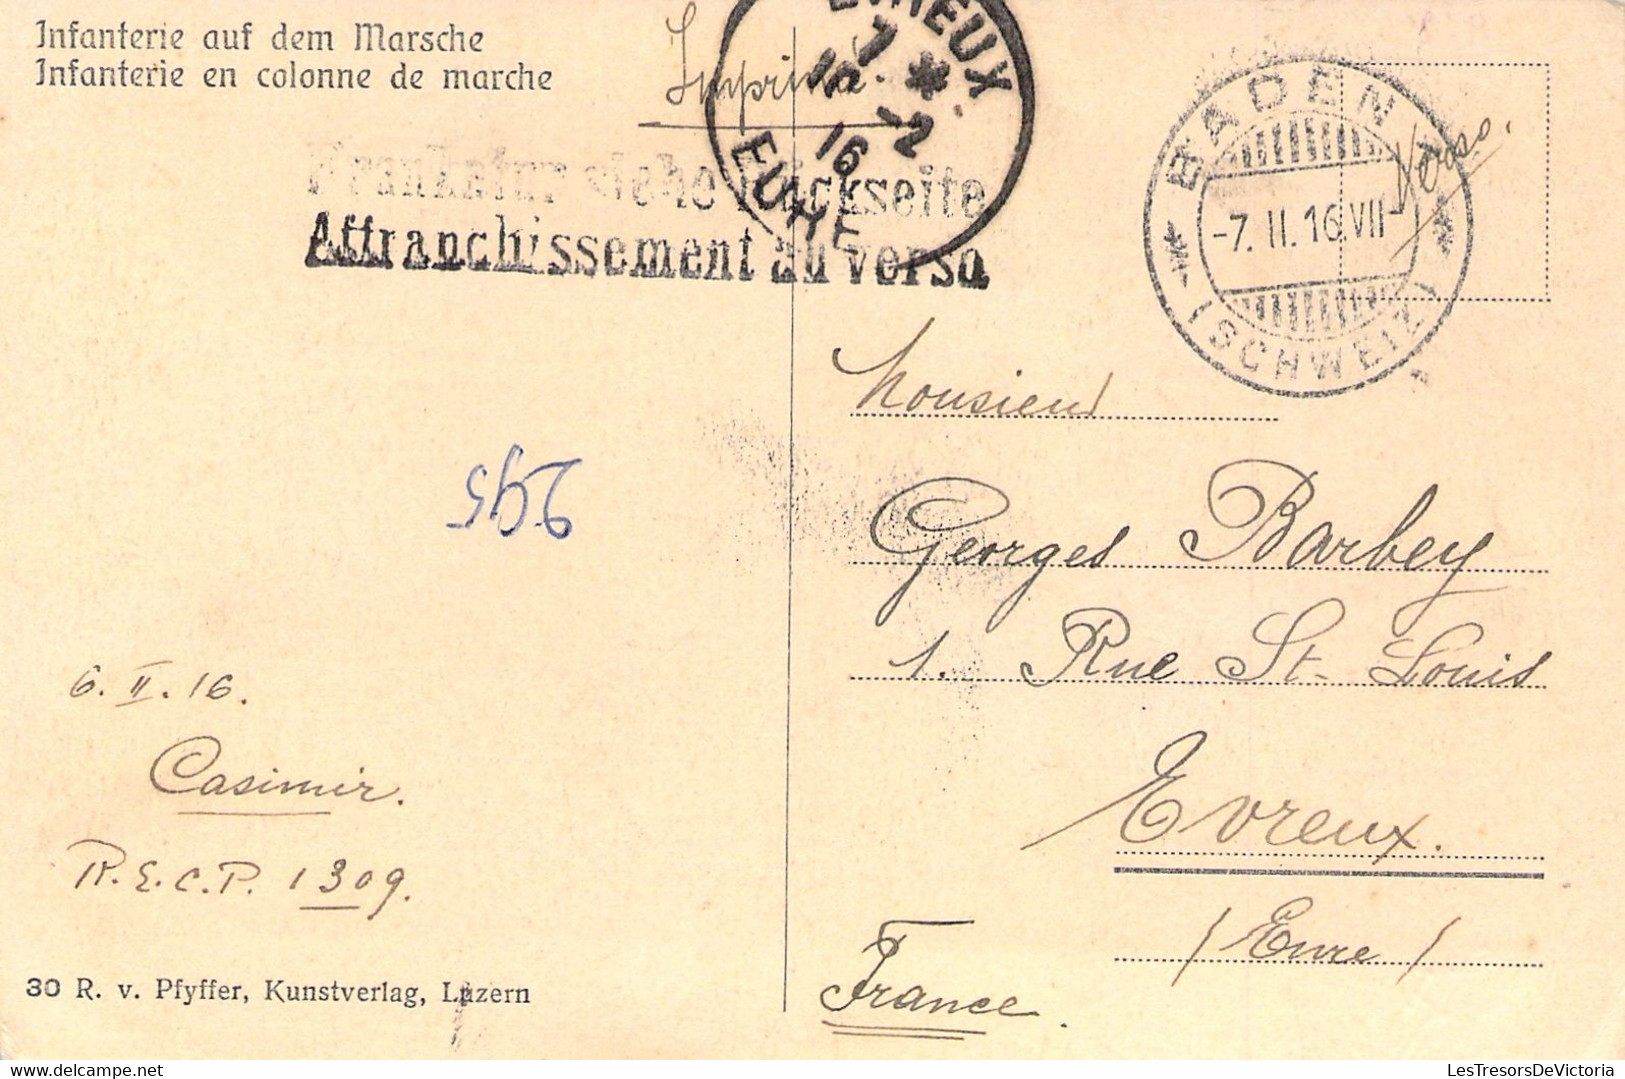 Infanterie auf dem Marsche
Infanterie en colonne de marche
Imprimé.
EVREUX
7 *
15 -2
16
EURE
Frankatur siehe Rückseite
Affranchissement au verso
BADEN
-7. II. 16. VII-
(SCHWEIZ)
Verso.
Monsieur
Georges Barbey
1. Rue St. Louis
Evreux.
(Eure)
France.
295
6. II. 16.
Casimir.
R.E.C.P. 1309.
30 R. v. Pfyffer, Kunstverlag, Luzern
© www.delcampe.net
LesTresorsDeVictoria